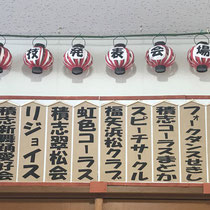 技発表会場
フォークダンスせきし
積志コーラスまどか
スピーチサークル
福矢浜松クラブ
虹色コーラス
積志翠松会
リジョイス
積志新